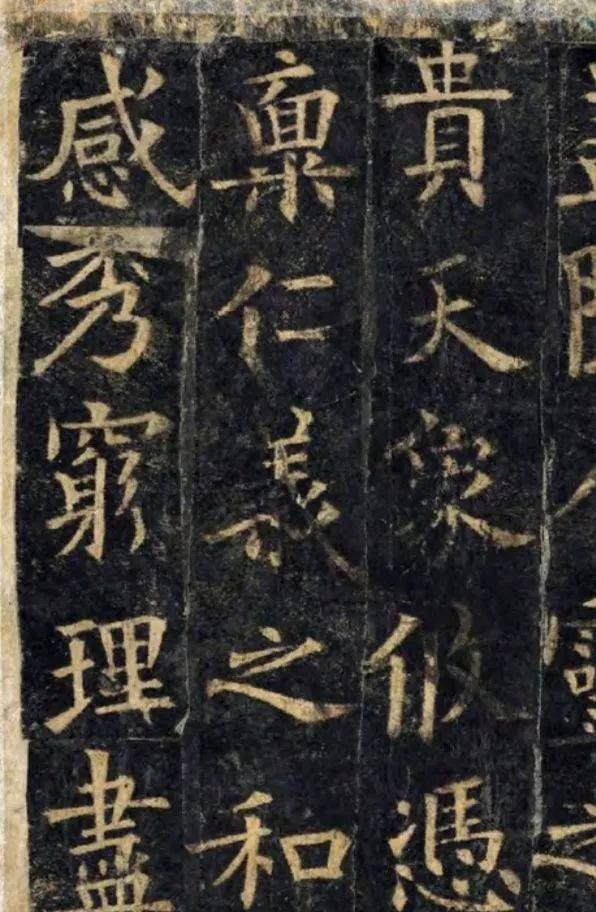 貴天象攸憑
稟仁義之和
感秀窮理盡